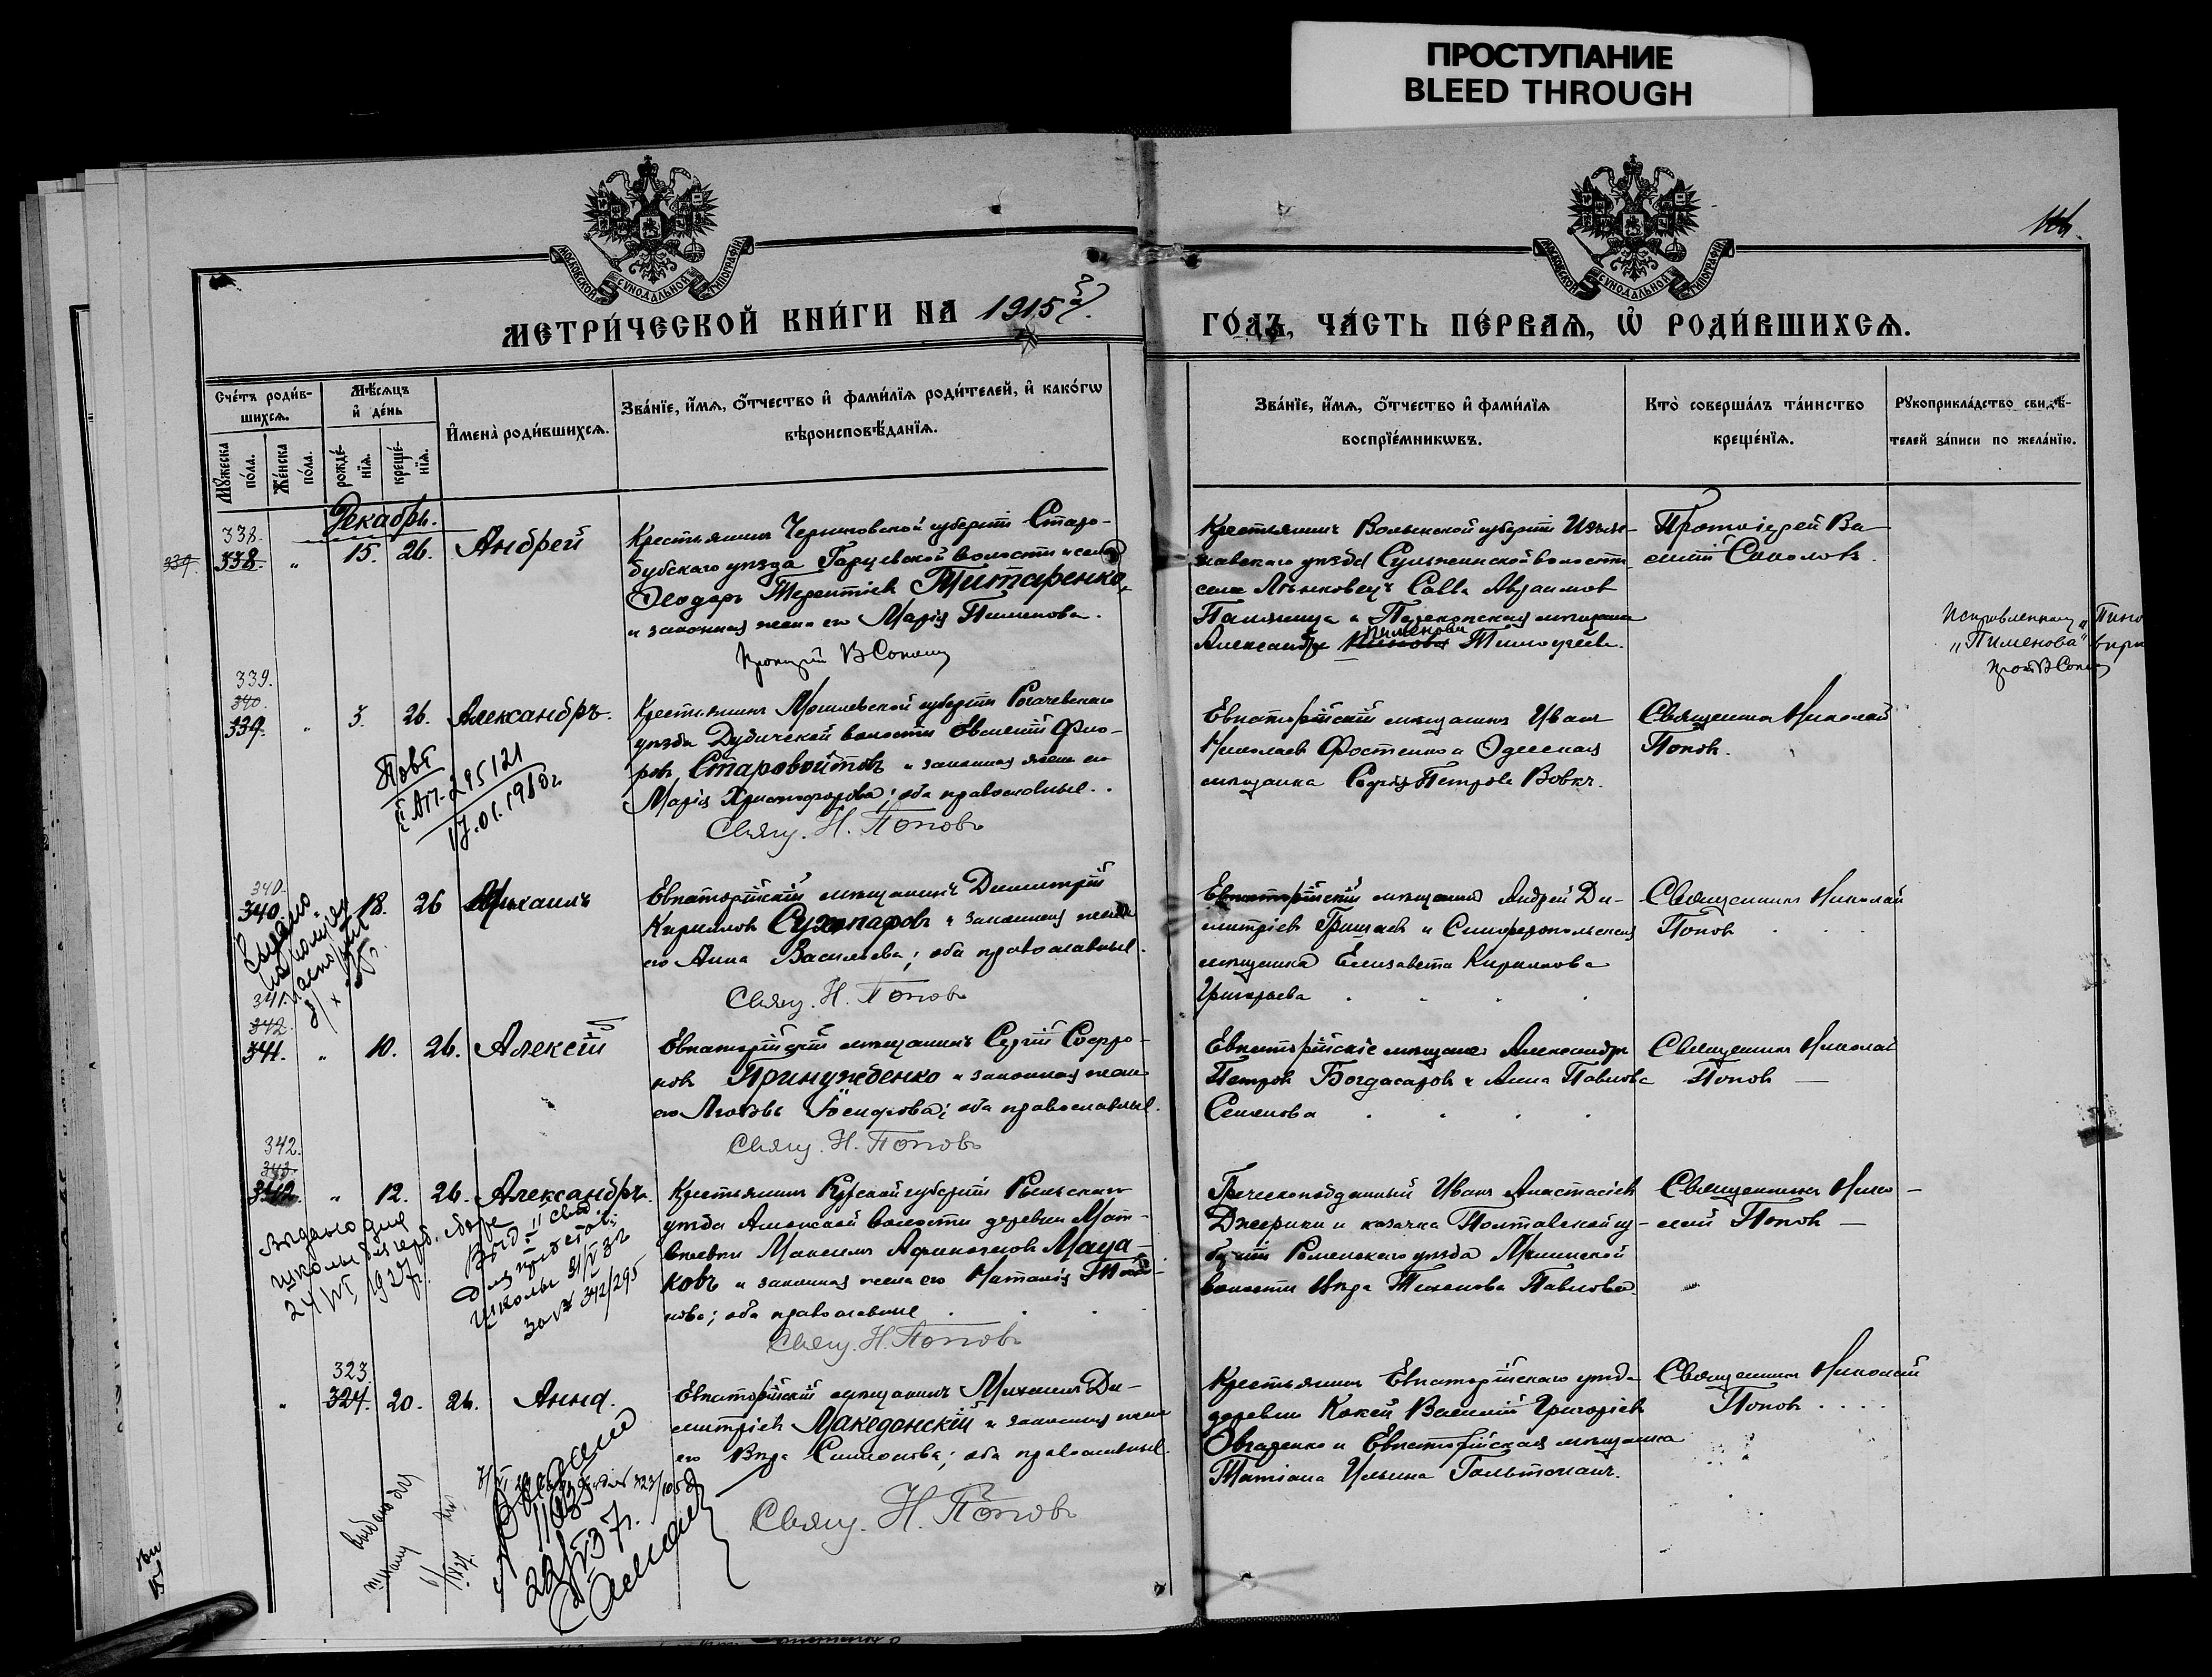 ПРОСТУПАНИЕ
BLEED THROUGH
МОСКОВСКОЙ СѴНОДАЛЬНОЙ ТИПОГРАФІИ
МОСКОВСКОЙ СѴНОДАЛЬНОЙ ТИПОГРАФІИ
МЕТРИ́ЧЕСКОЙ КНИ́ГИ НА 1915й
ГО́ДЪ, ЧА́СТЬ ПЕ́РВАѦ, Ѡ҆ РОДИ́ВШИХСѦ.
Сче́тъ роди́в-
шихсѧ.
Мѣ́сѧцъ
и҆ де́нь
И҆мена̀ роди́вшихсѧ.
Зва́нїе, и҆́мѧ, ѻ҆́тчество и҆ фами́лїѧ роди́телей, и҆ како́гѡ
вѣроисповѣ́данїѧ.
Мꙋ́жеска
по́ла.
Же́нска
по́ла.
рожде́-
нїѧ.
креще́-
нїѧ.
Зва́нїе, и҆́мѧ, ѻ҆́тчество и҆ фами́лїѧ
воспрїе́мникѡвъ.
Кто̀ соверша́лъ та́инство
креще́нїѧ.
Рꙋкоприкла́дство свидѣ́-
телей за́писи по жела́нїю.
Декабрь.
338.
339. 338. " 15. 26. Андрей
Крестьянинъ Черниговской губерніи Старо-
дубскаго уѣзда Гарцевской волости и села
Ѳеодоръ Терентіевъ Титаренко
и законная жена его Марія Пименова.
Протоіерей В Соколовъ
Крестьянинъ Волынской губерніи Изъяс-
лавскаго уѣзда Сульжинской волости
села Савва Авраамовъ
и Перекопская мѣщанка
Александра Пименова Тимоѳеева.
Протоіерей Ва-
силій Соколовъ.
Исправленному "Пино
"Пименова" вѣри
прот В Сокол
339.
340.
339. " 3. 26. Александръ.
Крестьянинъ Могилевской губерніи Рогачевскаго
уѣзда Дудичской волости Евсевій Фло-
ровъ Старовойтовъ и законная жена его
Марія Христофорова; оба православные.
Свящ. Н. Поповъ
Повт
АП-295121
17.01.1980г
Евпаторійскій мѣщанинъ Иванъ
Николаевъ Фостенко и Одесская
мѣщанка Софія Петрова Вовкъ.
Священникъ Николай
Поповъ.
340.
340. " 18. 26 Михаилъ
Евпаторійскій мѣщанинъ Димитрій
Кирилловъ Сухопаровъ и законная жена
его Анна Васильева; оба православные.
Свящ. Н. Поповъ
Евпаторійскій мѣщанинъ Андрей Ди-
митріевъ Грищаевъ и Симферопольская
мѣщанка Елизавета Кириллова
Григорьева
Священникъ Николай
Поповъ
341.
342.
341. " 10. 26. Алексій
Евпаторійскій мѣщанинъ Сергій Софро-
новъ Принужденко и законная жена
его Любовь Іосифова; оба православные.
Свящ. Н. Поповъ
Евпаторійскіе мѣщане Александръ
Петровъ Богдасаровъ и Анна Павлова
Семенова
Священникъ Николай
Поповъ —
342.
343.
342. " 12. 26. Александръ.
Крестьянинъ Курской губерніи Рыльскаго
уѣзда Амонской волости деревни Мат-
вѣевки Максимъ Афиногеновъ Маца-
ковъ и законная жена его Наталія
нова; оба православные
Свящ. Н. Поповъ
Выдано для
школы
24/VI 1927г.
Выд. II свид.
для представл.
школы 31/V 32
за № 342/295
Греческоподданный Иванъ Анастасіевъ
Джерики и казачка Полтавской гу-
берніи Роменскаго уѣзда
волости Вѣра Тихонова Павлова
Священникъ Нико-
лай Поповъ —
323.
" 324. 20. 26. Анна.
Евпаторійскій мѣщанинъ Михаилъ Ди-
митріевъ Македонскій и законная жена
его Вѣра Симонова; оба православные.
Свящ. Н. Поповъ
Крестьянинъ Евпаторійскаго уѣзда
деревни Кокей Василій Григоріевъ
Овчаренко и Евпаторійская мѣщанка
Татіана Ильина Гольтопанъ.
Священникъ Николай
Поповъ